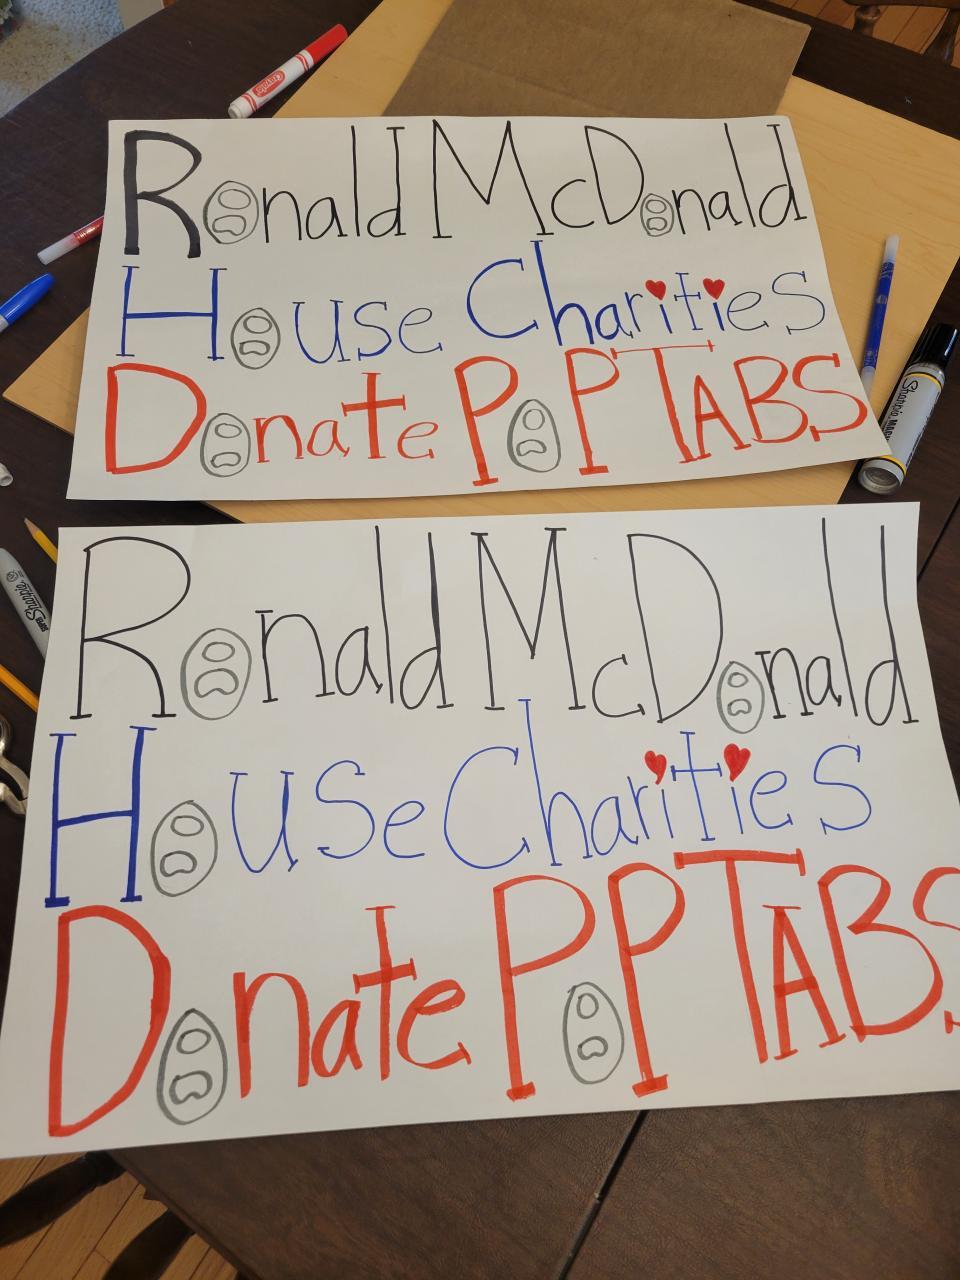 Ronald McDonald
House Charities
Donate POP TABS
Ronald McDonald
House Charities
Donate POP TABS
Crayola
Sharpie
Sharpie